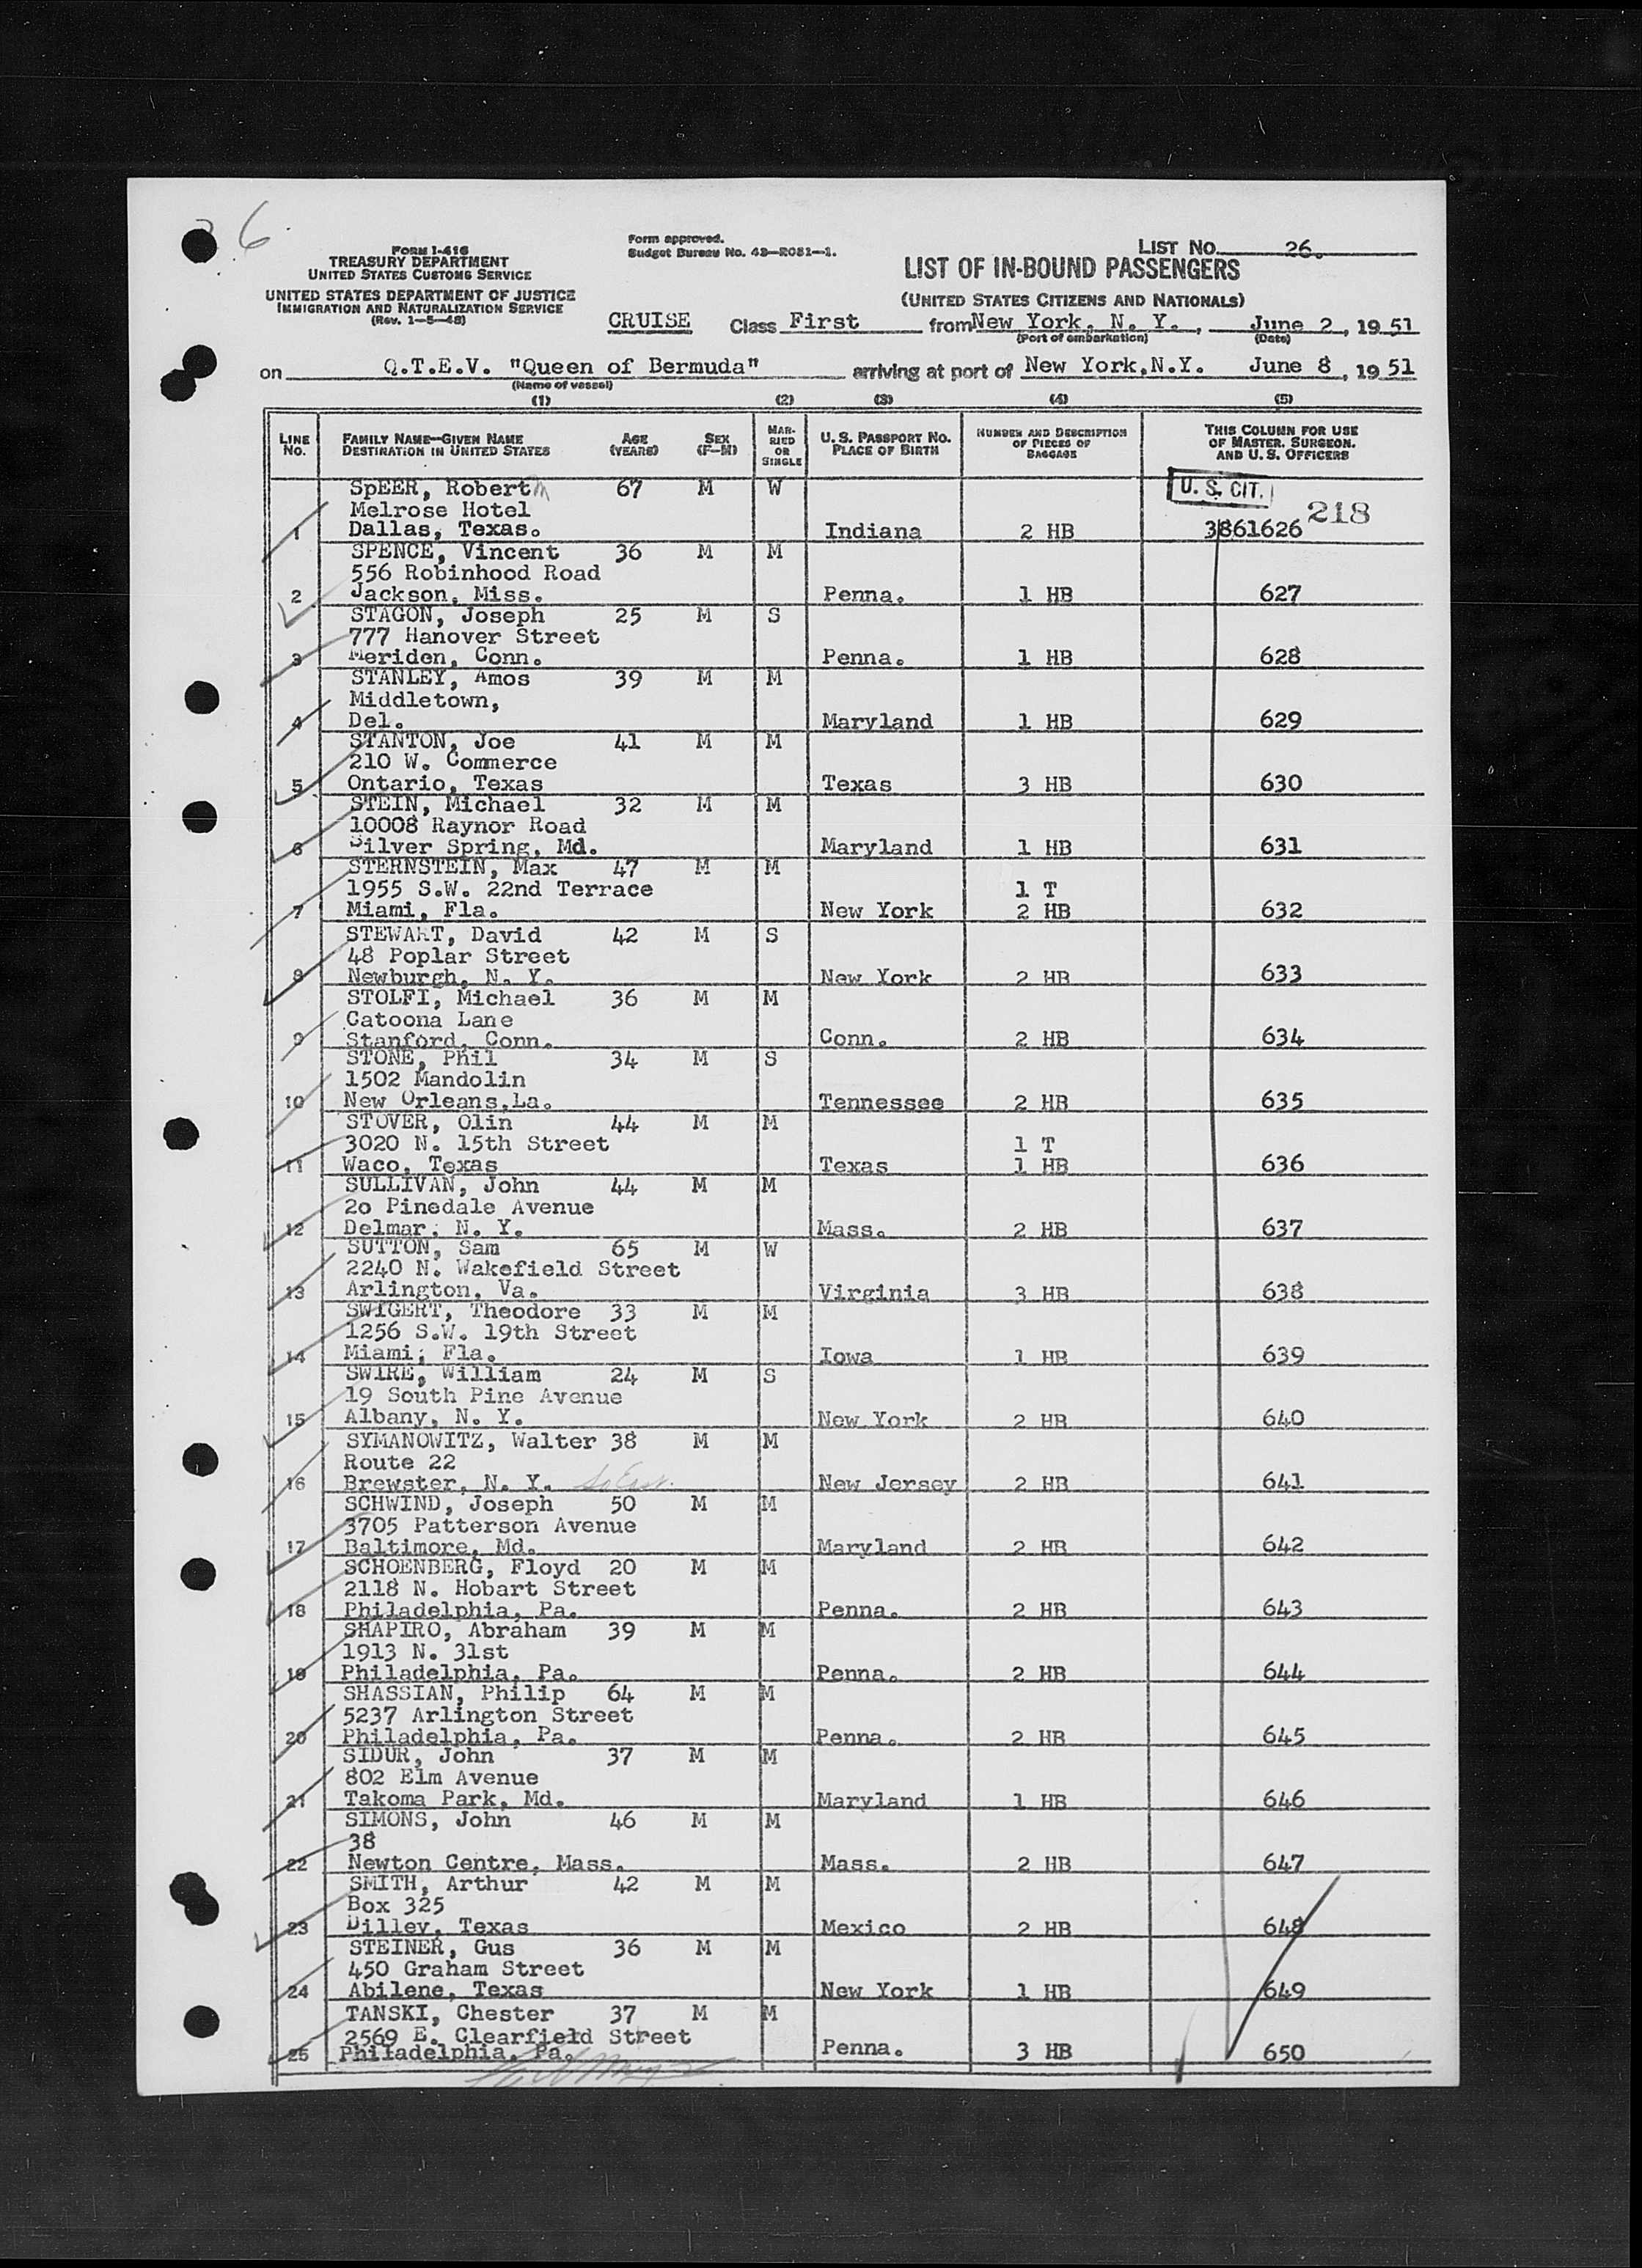 6.
FORM I-416
TREASURY DEPARTMENT
UNITED STATES CUSTOMS SERVICE
UNITED STATES DEPARTMENT OF JUSTICE
IMMIGRATION AND NATURALIZATION SERVICE
(Rev. 1-5-48)
Form approved.
Budget Bureau No. 43-R051-1.
LIST NO. 26.
LIST OF IN-BOUND PASSENGERS
(UNITED STATES CITIZENS AND NATIONALS)
CRUISE Class First from New York, N. Y., June 2, 1951
(Port of embarkation) (Date)
on Q.T.E.V. "Queen of Bermuda" arriving at port of New York, N.Y. June 8, 1951
(Name of vessel)
(1) (2) (3) (4) (5)
LINE NO. FAMILY NAME—GIVEN NAME DESTINATION IN UNITED STATES AGE (YEARS) SEX (F—M) MARRIED OR SINGLE U. S. PASSPORT NO. PLACE OF BIRTH NUMBER AND DESCRIPTION OF PIECES OF BAGGAGE THIS COLUMN FOR USE OF MASTER, SURGEON, AND U. S. OFFICERS
SpEER, Robert 67 M W U. S. CIT.
Melrose Hotel 218
1 Dallas, Texas. Indiana 2 HB 3861626
SPENCE, Vincent 36 M M
556 Robinhood Road
2 Jackson, Miss. Penna. 1 HB 627
STAGON, Joseph 25 M S
777 Hanover Street
3 Meriden, Conn. Penna. 1 HB 628
STANLEY, Amos 39 M M
Middletown,
4 Del. Maryland 1 HB 629
STANTON, Joe 41 M M
210 W. Commerce
5 Ontario, Texas Texas 3 HB 630
STEIN, Michael 32 M M
10008 Raynor Road
6 Silver Spring, Md. Maryland 1 HB 631
STERNSTEIN, Max 47 M M
1955 S.W. 22nd Terrace 1 T
7 Miami, Fla. New York 2 HB 632
STEWART, David 42 M S
48 Poplar Street
8 Newburgh, N. Y. New York 2 HB 633
STOLFI, Michael 36 M M
Catoona Lane
9 Stanford, Conn. Conn. 2 HB 634
STONE, Phil 34 M S
1502 Mandolin
10 New Orleans,La. Tennessee 2 HB 635
STOVER, Olin 44 M M
3020 N. 15th Street 1 T
11 Waco, Texas Texas 1 HB 636
SULLIVAN, John 44 M M
2o Pinedale Avenue
12 Delmar, N. Y. Mass. 2 HB 637
SUTTON, Sam 65 M W
2240 N. Wakefield Street
13 Arlington, Va. Virginia 3 HB 638
SWIGERT, Theodore 33 M M
1256 S.W. 19th Street
14 Miami, Fla. Iowa 1 HB 639
SWIRE, William 24 M S
19 South Pine Avenue
15 Albany, N. Y. New York 2 HB 640
SYMANOWITZ, Walter 38 M M
Route 22
16 Brewster, N. Y. New Jersey 2 HB 641
SCHWIND, Joseph 50 M M
3705 Patterson Avenue
17 Baltimore, Md. Maryland 2 HB 642
SCHOENBERG, Floyd 20 M M
2118 N. Hobart Street
18 Philadelphia, Pa. Penna. 2 HB 643
SHAPIRO, Abraham 39 M M
1913 N. 31st
19 Philadelphia, Pa. Penna. 2 HB 644
SHASSIAN, Philip 64 M M
5237 Arlington Street
20 Philadelphia, Pa. Penna. 2 HB 645
SIDUR, John 37 M M
802 Elm Avenue
21 Takoma Park, Md. Maryland 1 HB 646
SIMONS, John 46 M M
38
22 Newton Centre, Mass. Mass. 2 HB 647
SMITH, Arthur 42 M M
Box 325
23 Dilley, Texas Mexico 2 HB 648
STEINER, Gus 36 M M
450 Graham Street
24 Abilene, Texas New York 1 HB 649
TANSKI, Chester 37 M M
2569 E. Clearfield Street
25 Philadelphia, Pa. Penna. 3 HB 650